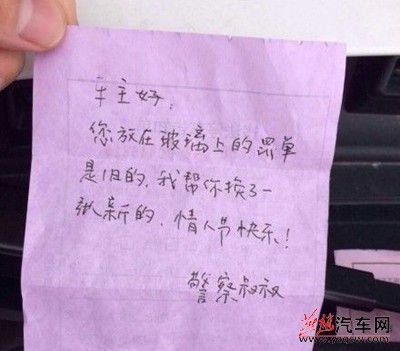 车主好：
您放在玻璃上的罚单
是旧的,我帮你换了一
张新的,情人节快乐!
警察叔叔
汽车网